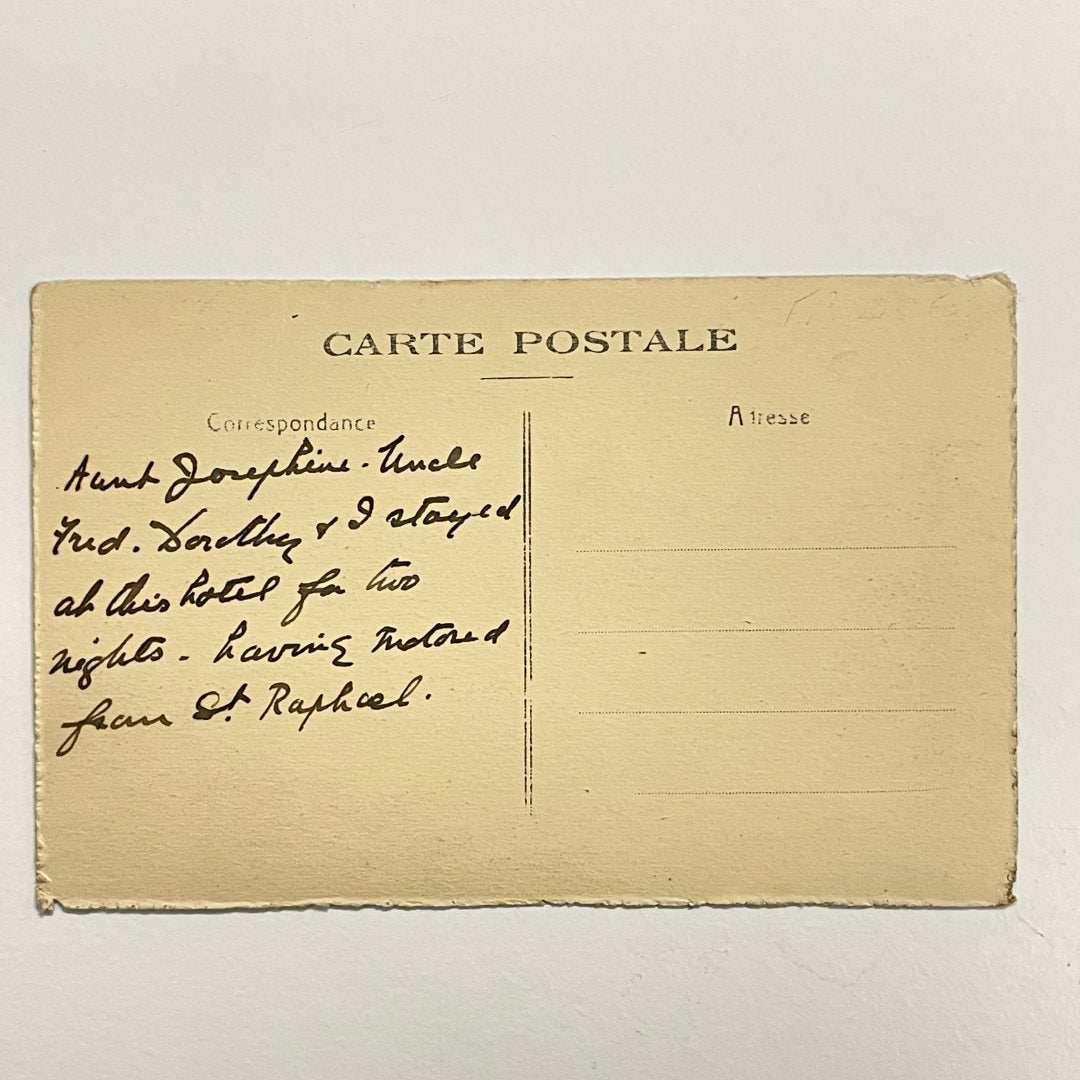 CARTE POSTALE
Correspondance
Adresse
Aunt Josephine. Uncle
Fred. Dorothy & I stayed
at this hotel for two
nights - having motored
from St. Raphael.